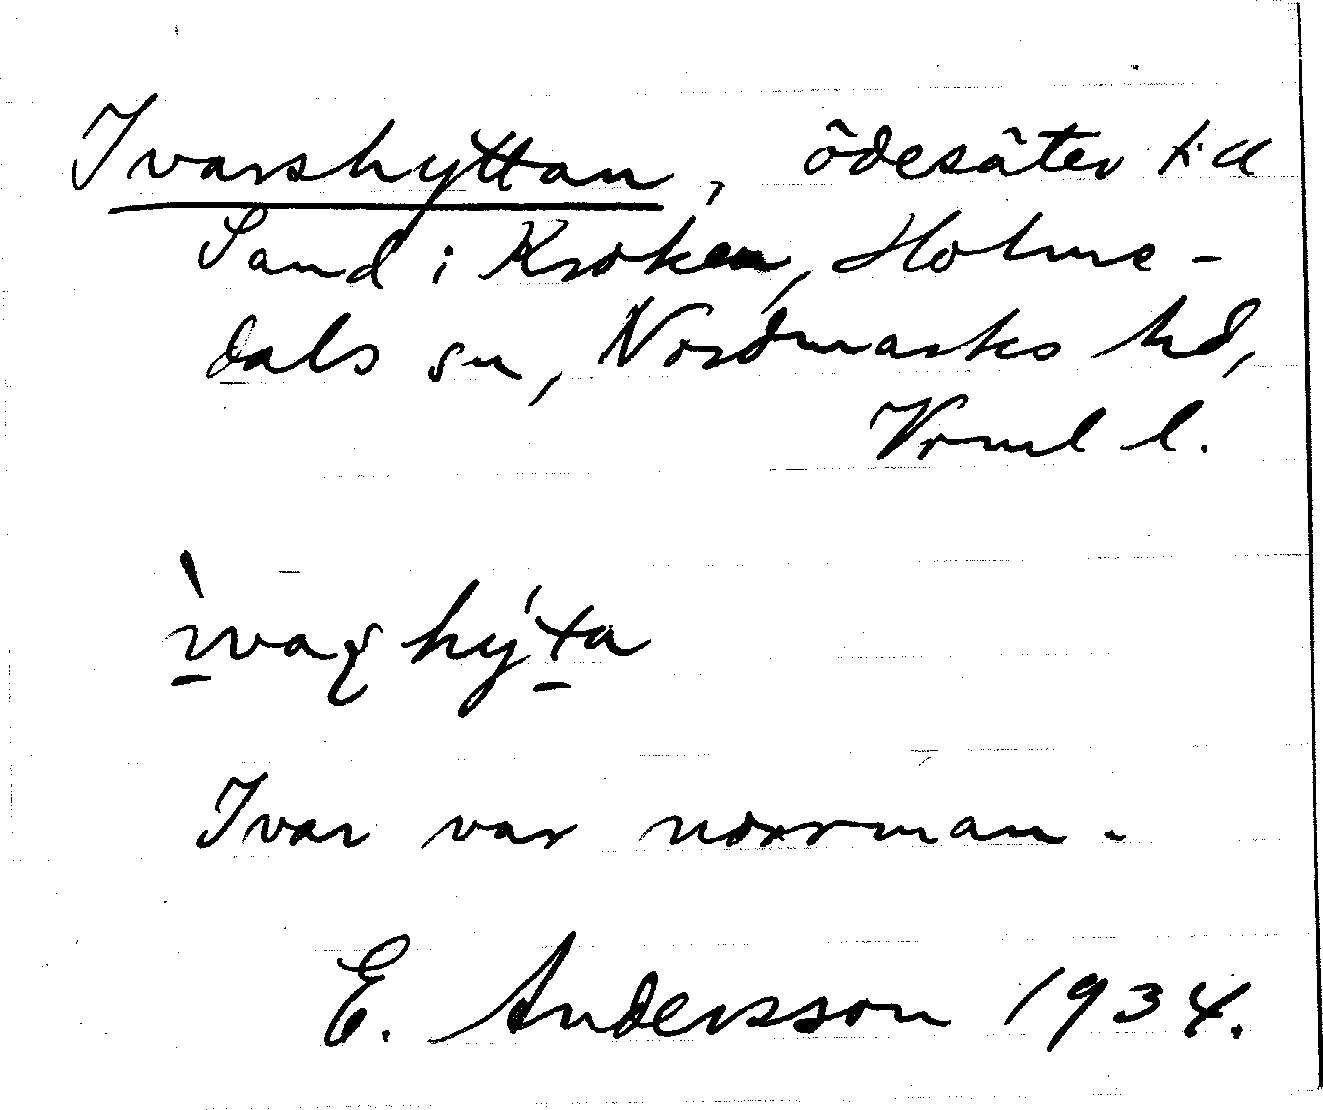 Ivarshyttan, ödesäter till
Sand i Kroken, Holme-
dals sn, Nordmarks hd,
Vrml l.
Ivar var norrman.
E. Andersson 1934.